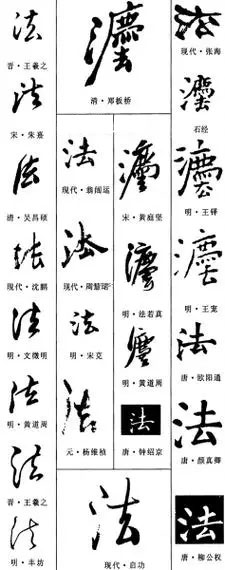 法
晋·王羲之
法
宋·朱熹
法
清·吴昌硕
法
现代·沈鹏
法
明·文徵明
法
明·黄道周
法
晋·王羲之
法
明·丰坊
灋
清·郑板桥
法
现代·翁闿运
法
现代·周慧珺
法
明·宋克
法
元·杨维桢
灋
宋·黄庭坚
灋
明·法若真
灋
明·黄道周
法
唐·钟绍京
法
现代·启功
法
现代·张海
灋
石经
灋
明·王铎
灋
明·王宠
法
唐·欧阳通
法
唐·颜真卿
法
唐·柳公权